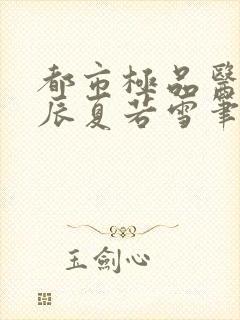 都市極品醫
辰夏若雪筆
玉劍心